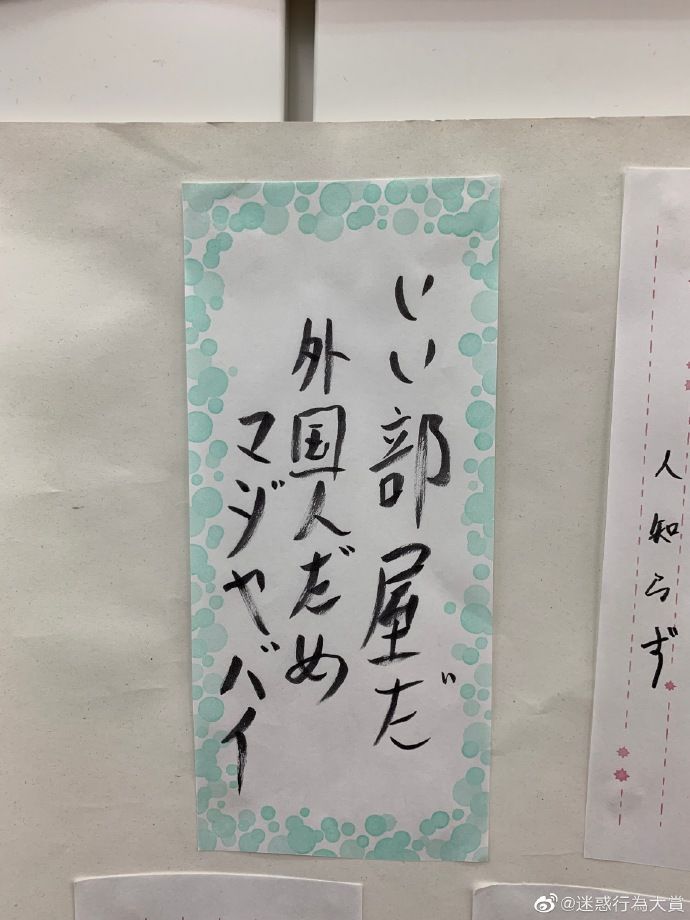 いい部屋だ
外国人だめ
マジヤバイ
人知らず
@迷惑行為大賞